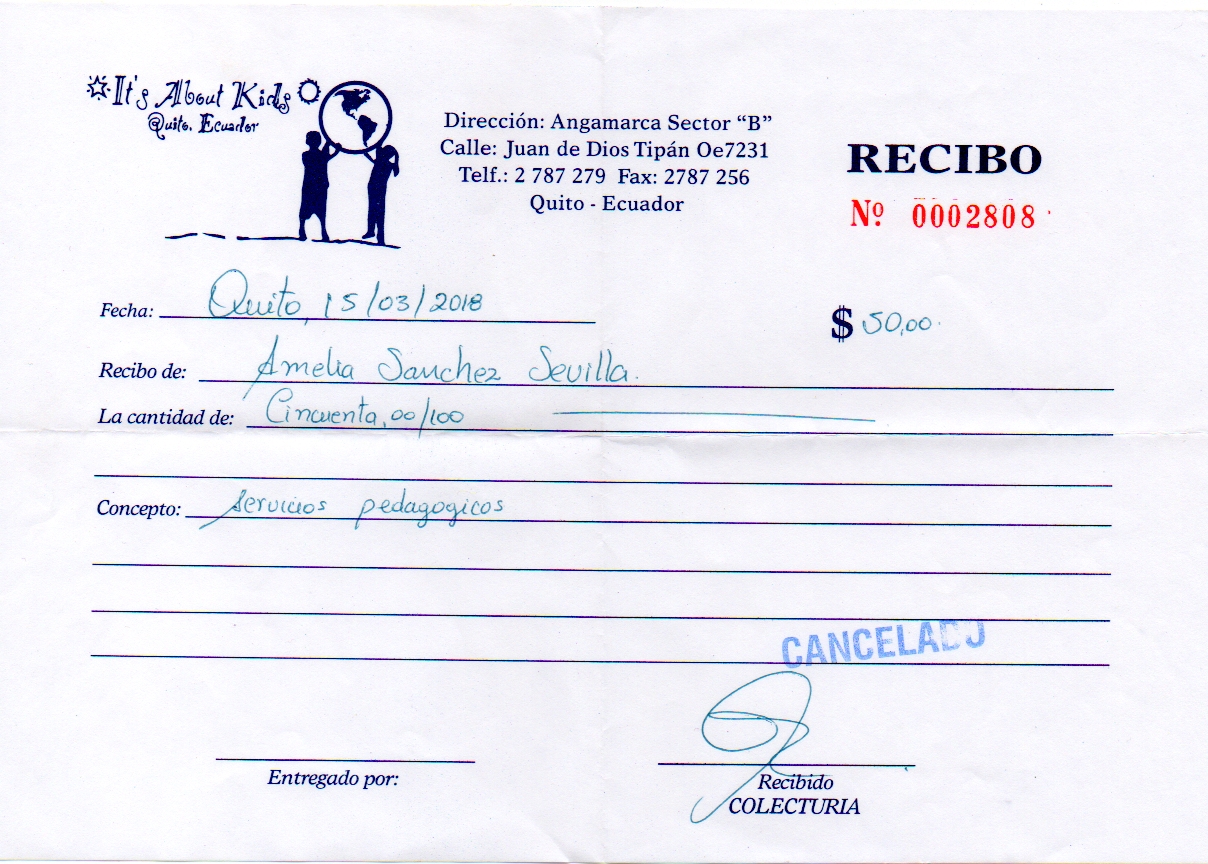 It's About Kids
Quito, Ecuador
Dirección: Angamarca Sector “B”
Calle: Juan de Dios Tipán Oe7231
Telf.: 2 787 279 Fax: 2787 256
Quito - Ecuador
RECIBO
Nº 0002808
Fecha: Quito, 15/03/2018
$ 50,00.
Recibo de: Amelia Sanchez Sevilla.
La cantidad de: Cincuenta,00/100
Concepto: servicios pedagogicos
CANCELADO
Entregado por:
Recibido
COLECTURIA